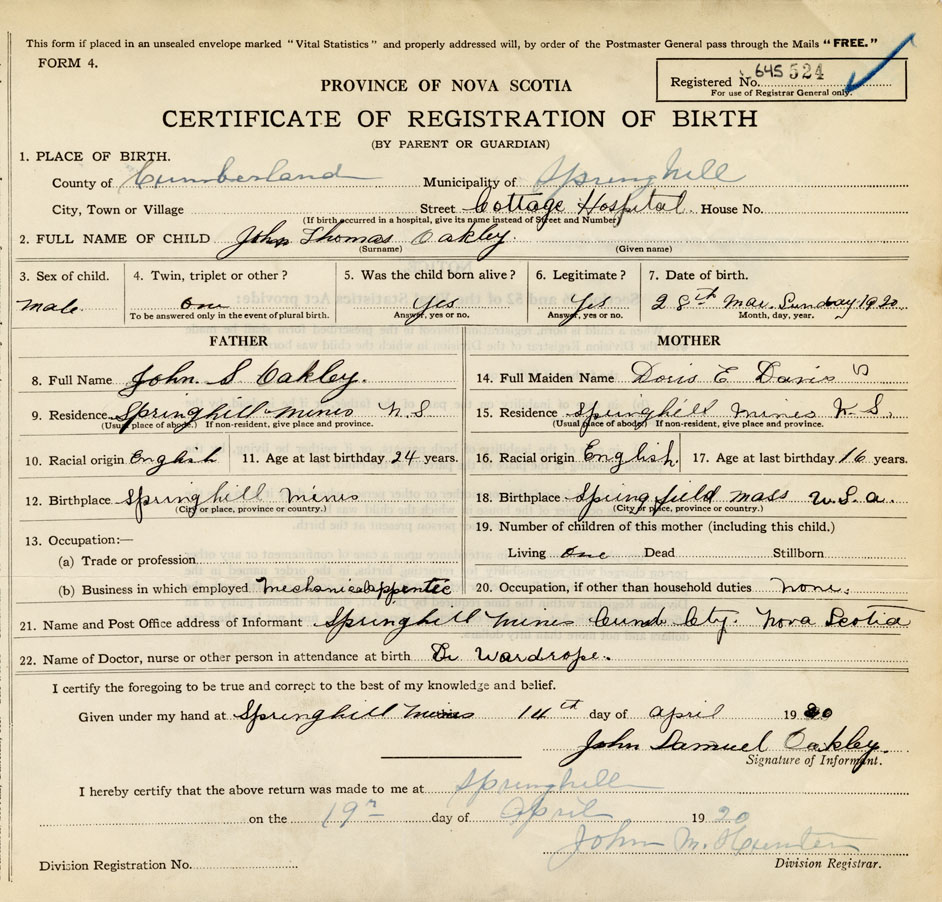 This form if placed in an unsealed envelope marked "Vital Statistics" and properly addressed will, by order of the Postmaster General pass through the Mails "FREE."
FORM 4.
Registered No. 645 524
For use of Registrar General only.
PROVINCE OF NOVA SCOTIA
CERTIFICATE OF REGISTRATION OF BIRTH
(BY PARENT OR GUARDIAN)
1. PLACE OF BIRTH.
County of Cumberland Municipality of Springhill
City, Town or Village Street Cottage Hospital. House No.
(If birth occurred in a hospital, give its name instead of Street and Number)
2. FULL NAME OF CHILD John Thomas Oakley.
(Surname) (Given name)
3. Sex of child. 4. Twin, triplet or other? 5. Was the child born alive? 6. Legitimate? 7. Date of birth.
Male one Yes Yes 28th Mar. Sunday 1920
To be answered only in the event of plural birth. Answer, yes or no. Answer, yes or no. Month, day, year.
FATHER
8. Full Name John. S Oakley.
9. Residence Springhill Mines N.S.
(Usual place of abode.) If non-resident, give place and province.
10. Racial origin English 11. Age at last birthday 24 years.
12. Birthplace Springhill Mines
(City or place, province or country.)
13. Occupation:—
(a) Trade or profession
(b) Business in which employed
MOTHER
14. Full Maiden Name Doris E Davis
15. Residence Springhill Mines N.S.
(Usual place of abode.) If non-resident, give place and province.
16. Racial origin English. 17. Age at last birthday 16 years.
18. Birthplace Springfield Mass U.S.A.
(City or place, province or country.)
19. Number of children of this mother (including this child.)
Living One Dead Stillborn
20. Occupation, if other than household duties None.
21. Name and Post Office address of Informant Springhill Mines Cumb Cty. Nova Scotia
22. Name of Doctor, nurse or other person in attendance at birth Dr Wardrope.
I certify the foregoing to be true and correct to the best of my knowledge and belief.
Given under my hand at Springhill Mines 14th day of April 1920
John Samuel Oakley.
Signature of Informant.
I hereby certify that the above return was made to me at Springhill
on the 19th day of April 1920
John M. Hunter
Division Registration No. Division Registrar.